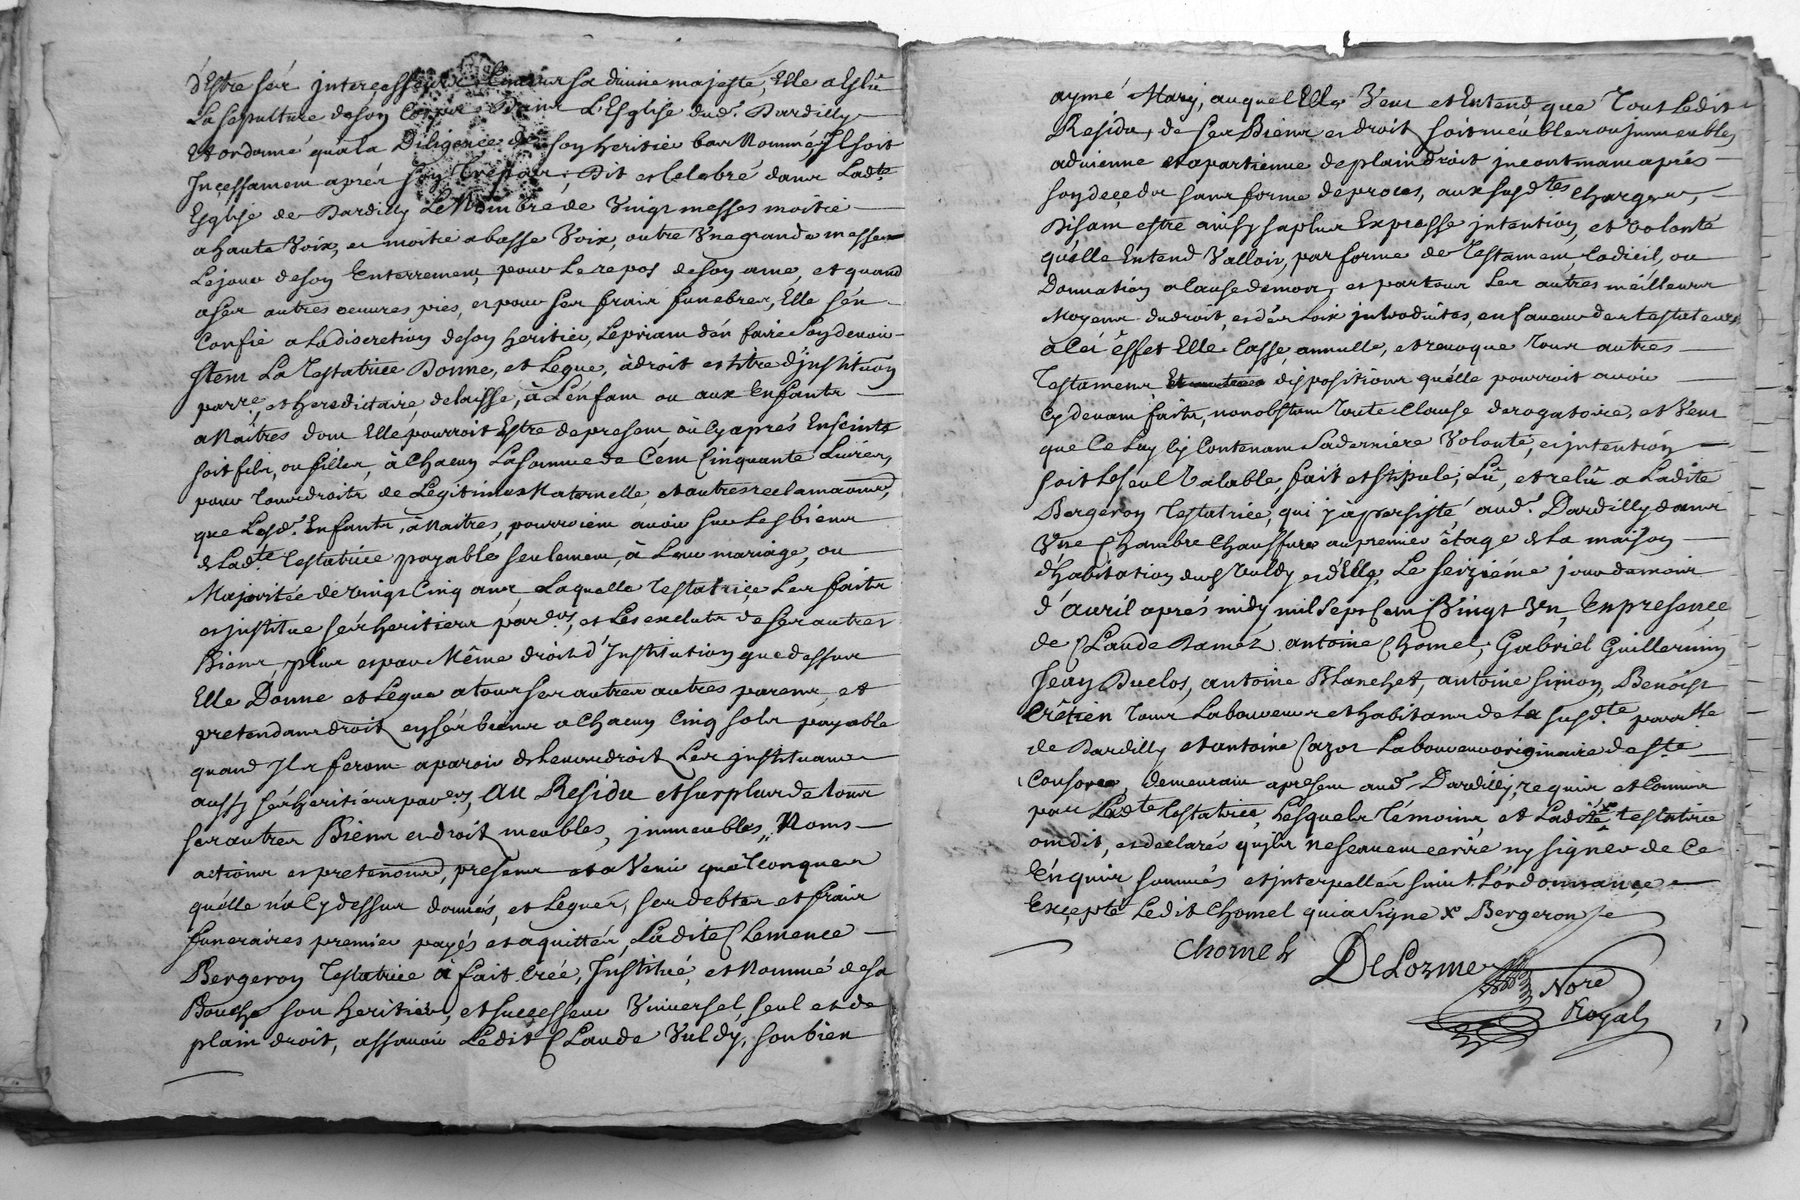 d'Estre sés intercesseurs Envers sa divine majesté, Elle a Eslû
La sepulture de son Corps Dans L'Esglise dud.t Dardilly
Et ordonné qu'a la Diligence de son heritier bas Nommé Il soit
Incessament aprés son Trépas, Dit et Celebré dans Ladte
Esglise de Dardilly Le Nombre de Vingt messes moitié
a haute Voix, et moitié a basse Voix, outre Vne grande messe
Le jour de son Enterrement, pour Le repos de son ame, et quand
a ses autres oeuvres pies, et pour ses frais funebres, Elle s'én
Confie a La discretion de son heritier, Le priant d'én faire son devoir
Item La Testatrice Donne, et Legue, à droit et titre d'jnstitu͠on
parre, et hereditaire delaisse, à L'énfant ou aux Enfants
a Naîtres dont Elle pourroit Estre de present, où Cy aprés Enceinte
soit fils, ou filles, à Chacun La somme de Cent Cinquante Livres,
pour Tous droits de Legitimes Maternelle, et autres reclama͠ons,
que Lesd.ts Enfants, à Naitres, pourroient avoir sur Les biens
de Ladte Testatrice payable seulement, à Leur mariage, ou
Majoritée de vingt Cinq ans, Laquelle Testatrice Les fait
et jnstitue sés heritiers par.ers, et Les exclut de ses autres
Biens, plus et par Même droit d'Institution que dessus
Elle Donne et Legue a tous ses autres autres parens, et
pretendans droit en sés biens a Chacun Cinq sols payable
quand Ils feront aparoir de Leurs droit Les jnstituans
aussy sés heritiers par.ers, AU Residu et surplus de tous
ses autres Biens et droit meubles, jmmeubles, Noms
actions et preten͠ons, presens et a Venir quélconques
qu'elle n'a Cy dessus donnés, et Legués, ses debtes et frais
funeraires premier payés et aquittés, Ladite Clemence
Bergeron Testatrice a fait Créé, Jnstitué, et Nommé de sa
Bouche son heritier, et successeur Vniversel, seul et de
plain droit, assavoir Ledit Claude Vuldy, son bien
aymé Mary, auquel Elle Veut et Entend que Tout Ledit
Residu, de ses Biens et droit soit meubles ou jmmeubles
advienne et apartienne de plain droit jncontinant aprés
son decedz sans forme de procés, aux susd.tes charges,
Disant estre ainsy sa plus Expresse jntention, et Volonté
qu'elle Entend Valloir, par forme de Testament, Codicil, ou
Donnation a Cause de mort, et par tous Les autres méilleurs
Moyens du droit, et dés Loix jntroduites, en faveur des testateurs
à Cét éffet Elle Casse, annulle, et revoque Tous autres
Testamens dispositions qu'elle pourroit avoir
Cy devant faits, nonobstant Toute Clause derogatoire, et Veut
que Ce Luy Cy Contenant Sa derniére Volonté, et jntention
soit Le seul Valable, fait et stipulé, Lû, et relû a Ladite
Bergeron Testatrice, qui y à persisté aud.t Dardilly dans
Vne Chambre Chauffure au premier étage de La maison
d'habitation dud Vuldy et d'Elle, Le seiziéme jour du mois
d'avril aprés midy mil Sept Cent Vingt Vn, En presence
de Claude Ramez antoine Chomel, Gabriel Guillermin
Jean Duclos, antoine Blanchet, antoine Simon, Benoist
Crêtien Tous Laboureurs et habitans de La susd.te paroisse
de Dardilly et antoine Cazot Laboureur originaire de Ste
Consorce demeurant a present aud.t Dardilly, requis et Connus
par Ladte Testatrice, Lesquels Témoins et Ladite x testatrice
ont dit, et declarés qu'jls ne scavent écrire ny signer de Ce
Enquis sommés et jnterpellés suiv.t L'órdonnance,
Excepté Ledit Chomel qui a Signé x Bergeron
chomel
DeLorme
Nore
Royal